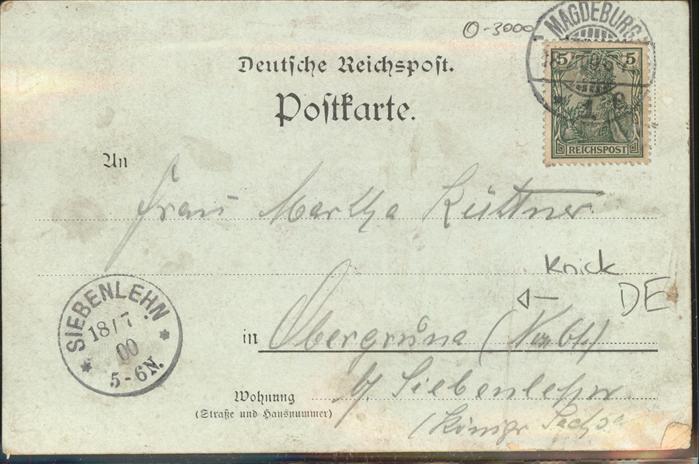 O-3000
MAGDEBURG
5 5
REICHSPOST
Deutsche Reichspost.
Postkarte.
An
Frau Martha Küttner
Knick
DE
SIEBENLEHN
18/7
00
5-6N.
in Obergruna
b/ Siebenlehn
Wohnung
(Straße und Hausnummer)
(Königr. Sachs